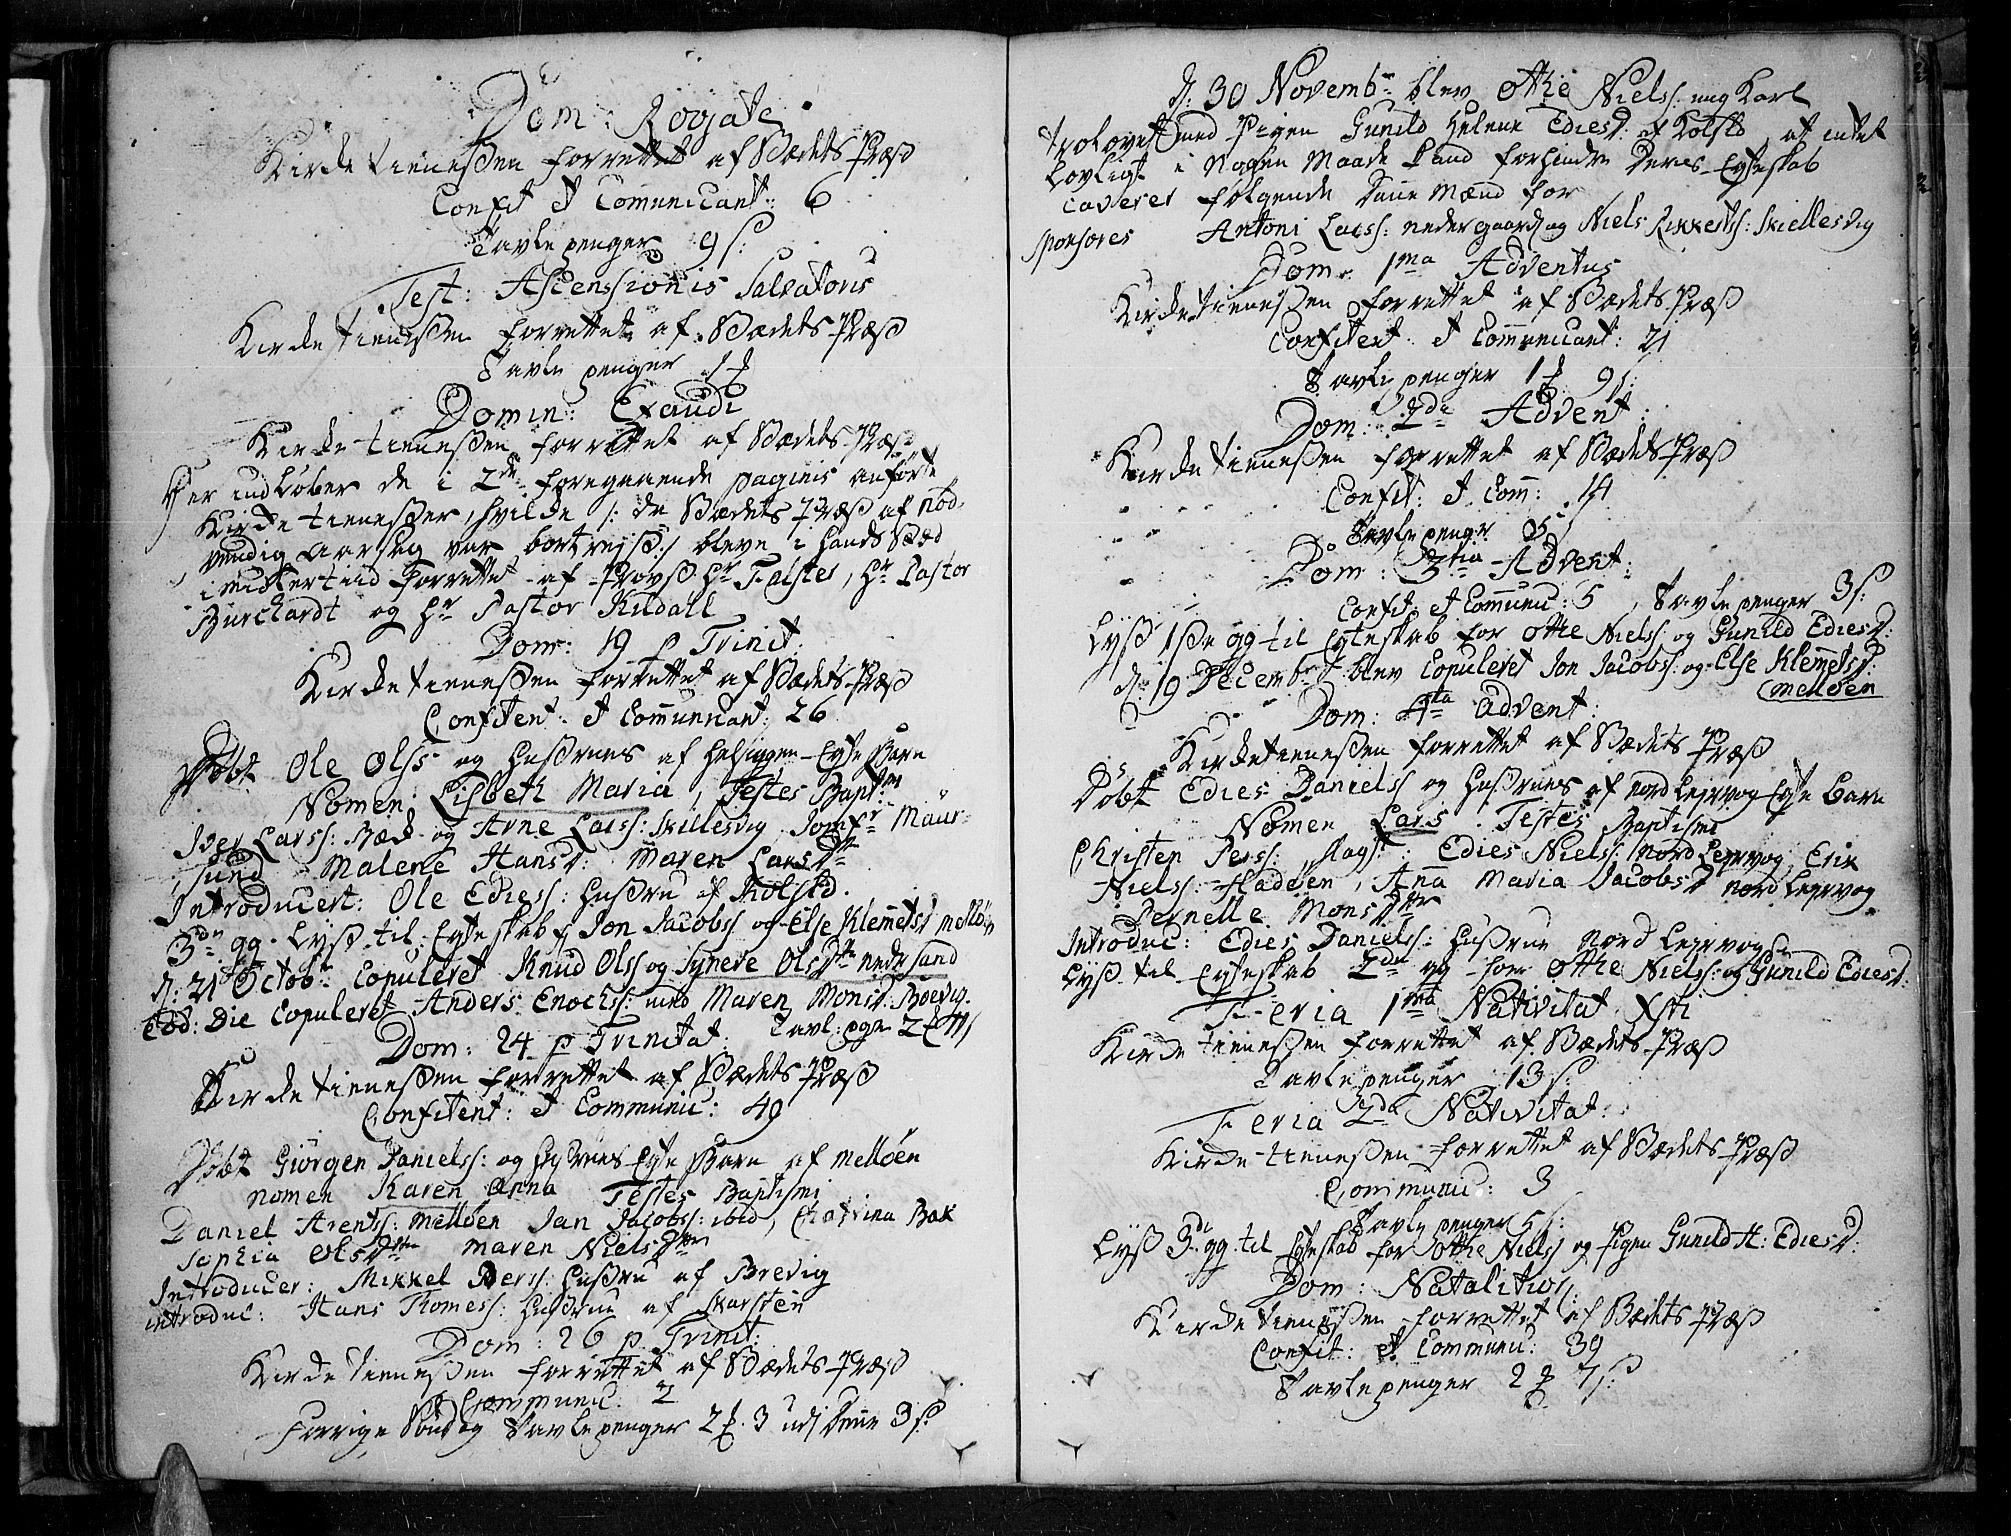 Dom: Rogate
Kirke tienesten forrettet af Stædets Præst
Confit et Communicant: 6
Tavle penger 9 s:
Fest: Ascenssionis Salvatoris
Kirke tienesten forrettet af Stædets Præst
Tavle penger
Domin: Exaudi
Kirke tienesten forrettet af Stædets Præst
Her indløber de i 2de foregaaende paginis anførte
Kirke tienester, hvilke /: de Stædets Præst af nød-
vendig Aarsag var bortreist :/ bleve i hands Stæd
imidlertiid forrettet af Provst Hr Falster, Hr Pastor
Burchardt og Hr Pastor Kildall
Dom: 19 p Trinit:
Kirke tienesten forrettet af Stædets Præst
Confitent: et Communicant: 26
Døbt Ole Olss og Hustrues af Helsiggen Ægte Barn
Nomen: Lisbeth Maria, Testes Bapt:
Iver Larss: Bæd og Arne Larss: Skillesvig Jomfr Maur-
sund Malene Hansd: Maren Larsd
Introducert: Ole Ediess: Hustru af Kolsld.
3die gg. Lyst til Egteskab f Jon Jacobss og Else Klemetsd melløen
d: 21 Octobr Copuleret Knud Olss og Synere Olsd nedrsand
Eod: Die Copuleret Anders Enochss: med Maren Monsd: Boevig.
Dom: 24 p Trinitat: Tavl: pgr 2
Kirke tienesten forrettet af Stædets Præst
Confitent: et Communic: 49
Døbt Giørgen Danielss: og Hustrues Egte Barn af melløen
nomen Karen Anna Testes Baptismi
Daniel Arentss: melløen Jan Jacobss: ibid, Chatrina Bak
Sophia Olsd Maren Nielsd
Introducer: Mikkel Perss: Hustru af Brevig
introduc: Hans Thomess: Hustrue af Skarsten
Dom: 26 p Trinit:
Kirke tienesten forrettet af Stædets Præst
Communic: 2
Forrige Søndag Tavle penger 2 . 3 udj denne 3 s:
d: 30 Novembr blev Othe Nielss: ung Karl
trolovet med Pigen Gunild Helene Ediesd: af Kolsld, at intet
Lovligt i Nogen Maade kand forhindre deres Egteskab
caverer følgende Daue Mænd for
sponsores Antoni Larss: nedergaard og Niels Rikkertss: Skiellesvig
Dom: 1ma Adventus
Kirke tienesten forrettet af Stædets Præst
Confitent: et Communicant: 21
Tavle penger 1 9 s:
Dom: 2da Advent:
Kirke tienesten forrettet af Stædets Præst
Confit: et Comm: 14
Tavle penger 5 s
Dom: 3tia Advent:
Confit: et Communic: 5, Tavle penger 3 s:
Lyst 1ste gg til Egteskab for Othe Nielss: og Gunild Ediesd:
d: 19 Decembr blev Copuleret Jon Jacobss: og Else Klemetsd:
melløen
Dom: 4ta Advent:
Kirke tienesten forrettet af Stædets Præst
Døbt Edies Danielss og Hustrues af Nord Lejrvog Egte Barn
Nomen Lars. Testes Baptismi
Christen Perss: Edies Nielss: Nord Lejrvog Erik
Nielss: Hadøen, Ana Maria Jacobsd nord Lejrvog
Pernelle Monsdtr
Introduc: Edies Danielss: Hustrue Nord Lejrvog
Lyst til Egteskab 2den gg for Othe Nielss: og Gunild Ediesd:
Feria 1ma Nativitat Xsti
Kirke tienesten forrettet af Stædets Præst
Tavle penger 13 s:
Feria 2da Nativitat:
Kirke tienesten forrettet af Stædets Præst
Communic: 3
Tavle penger 5 s:
Lyst 3die gg. til Egteskab for Othe Nielss og Pigen Gunild H: Ediesd:
Dom: Natalitior:
Kirke tienesten forrettet af Stædets Præst
Confit: et Communic: 39
Tavle penger 2 7 s: